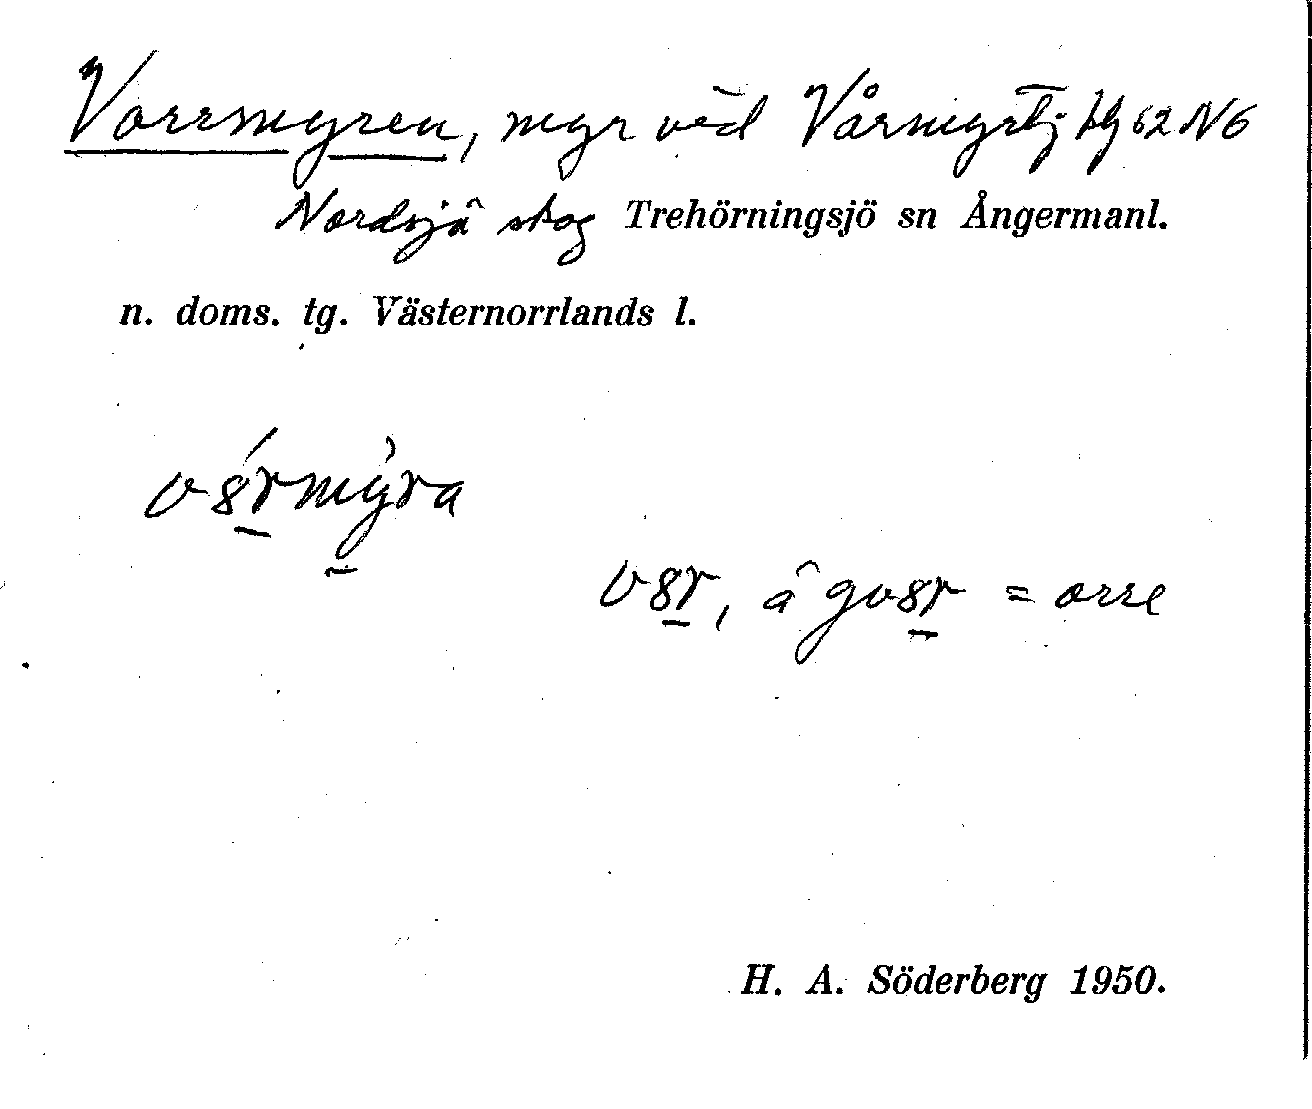 Vorrmyren, myr vid Vårmyrtj bg 62 N6
Nordsjö skog Trehörningsjö sn Ångermanl.
n. doms. tg. Västernorrlands l.
v8rmyra
v8r, å gv8r = orre
H. A. Söderberg 1950.